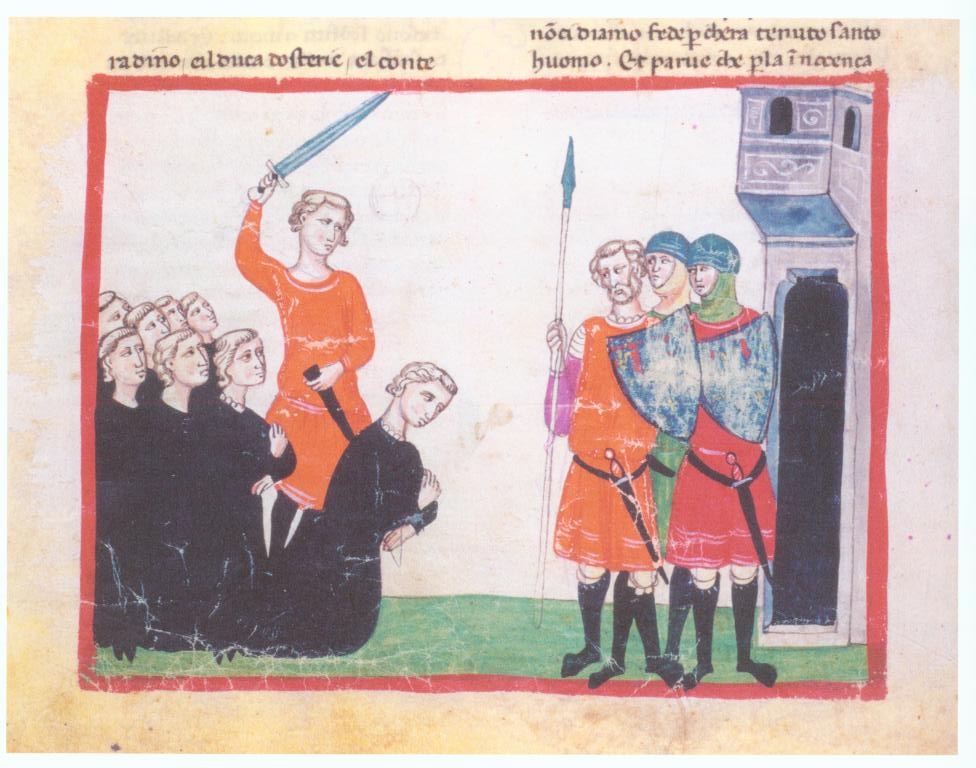 radino, eil duca dosteric, el conte
nōci diamo fede ꝑ chera tenuto santo
huomo. Et parue che ꝑla īnocença